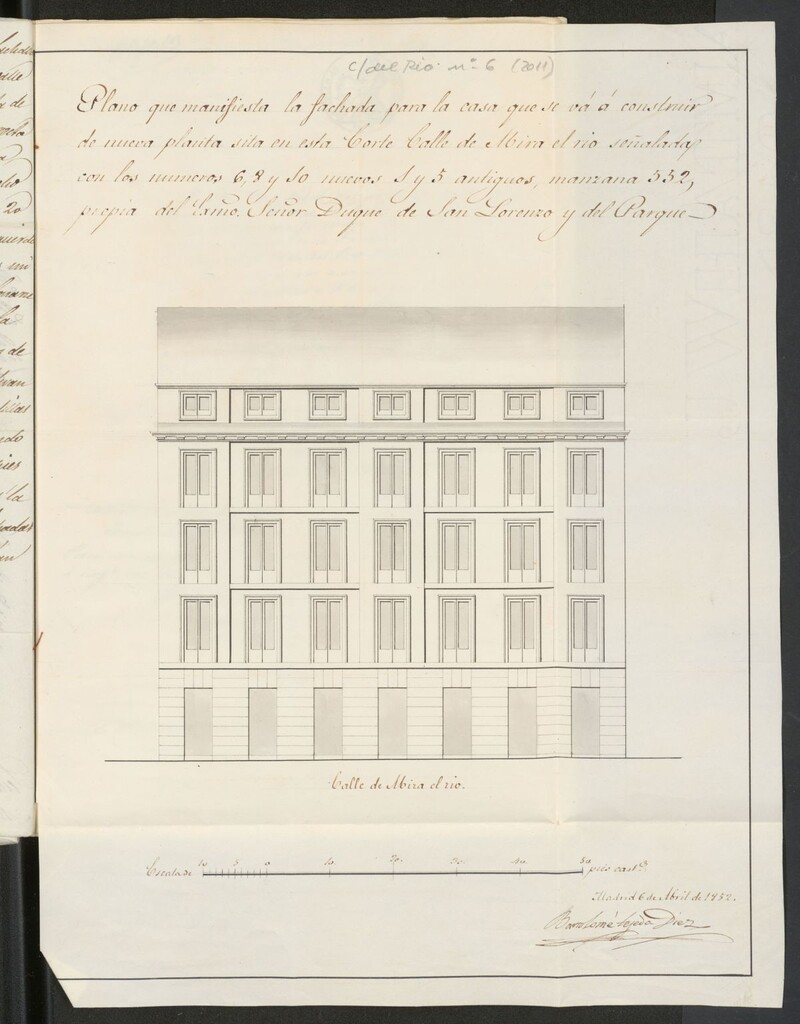 C/ del Rio nº 6 (2011)
Plano que manifiesta la fachada para la casa que se vá á construir
de nueva planta sita en esta Corte Calle de Mira el rio señalada
con los numeros 6, 8 y 10 nuevos 1 y 5 antiguos, manzana 552,
propia del Exmo. Señor Duque de San Lorenzo y del Parque
Calle de Mira el rio.
Escala de 10 5 0 10. 20. 30. 40. 50 pies cast.s
Madrid 6 de Abril de 1852.
Bartolomé Tejeda Diez
20
de
la
y de
y la